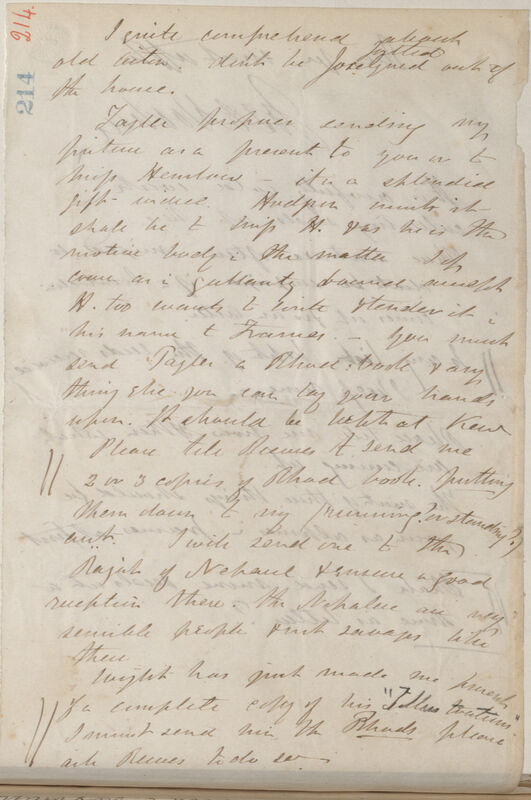 214
214
I quite comprehend about
old don't be jockeyed out of
the house.
Tayler proposes sending my
picture as a present to you or to
Miss Henslow — it is a splendid
gift indeed. Hodgson insists it
shall be to Miss H. & as he is the
motive body in the matter I of
course as in gallantry bound accept
H. too wants to write & tender it in
his name to Frances. — You must
send Tayler a Rhod: book & any
thing else you can lay your hands
upon. It should be kept at Kew
Please tell Reeves to send me
2 or 3 copies of Rhod book. putting
them down to my running (or standing?)
acct. I will send one to the
Rajah of Nepaul & ensure a good
reception there. the Nepalese are very
sensible people & not savages like
these
Wight has just made me present
of a complete copy of his "Illustrations"
I must send him the Rhods please
ask Reeves to do so.